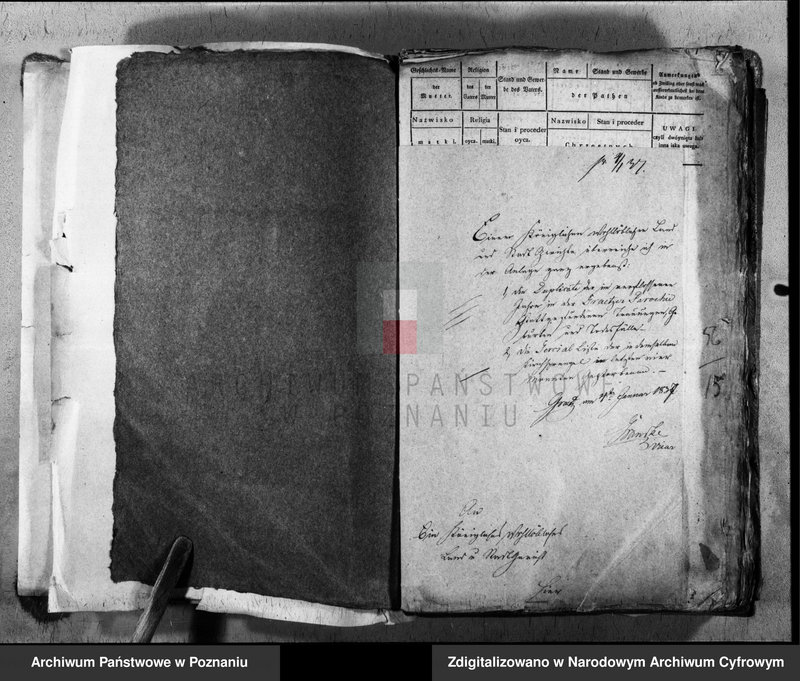 Geschlechts-Name Religion Stand und Gewerbe des Vaters. Name Stand und Gewerbe Anmerkungen
der Mutter. des Vaters der Mutter der Pathen
Nazwisko Religia Stan i proceder oyca. Nazwisko Stan i proceder UWAGI
matki. oyca. matki. Chrzestnych
pr 4/1 37.
Einem Königlichen Wohllöblichen Land
und Stadt Gerichte überreiche ich in
der Anlage ganz ergebenst.
1, die Duplicate der im verflossenen
Jahre in der Graetzer Parochie
stattgefundenen Trauungen, Ge
burten und Todesfälle.
2, die Liste der in demselben
Kirchsprengel in letzten vier
Monaten
Graetz, am 4ten Januar 1837
An
Ein Königliches Wohllöbliches
Land u Stadt Gericht
Hier
56
15
ARCHIWUM PAŃSTWOWE
W POZNANIU
Archiwum Państwowe w Poznaniu
Zdigitalizowano w Narodowym Archiwum Cyfrowym